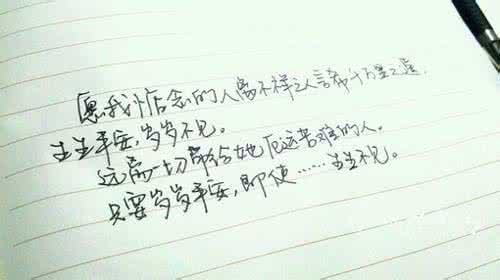 愿我惦念的人离不祥之人十万里之遥.
生生平安,岁岁不见。
远离一切带给她厄运苦难的人。
只要岁岁平安,即使……生生不见。